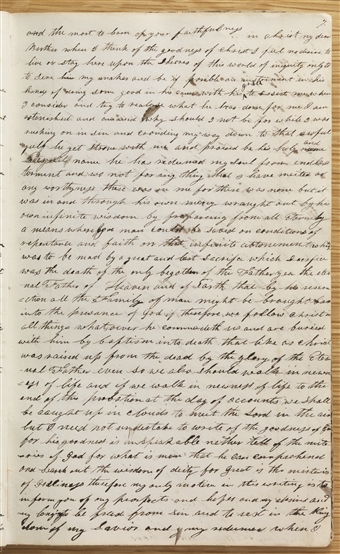 7
and the most to learn of your faithfulness in Christ my dear
Brother when I think of the goodness of Christ I feel no desire to
live or stay here upon the Shores of this world of iniquity only
to serve him my maker and be if possible an instrument in his
hands of doing some good in his cause with him to assist me when
I consider and try to realize what he has done for me I am
astonished and amazed why should I not be for while I was
rushing on in sin and crowding my way down to that awful
gulf he yet strove with me and praised be his holy and
name he has redeemed my Soul from endless
torment and not for any thing that I have merited or
any worthyness that was in me for there was none but it
was in and through his own mercy wraught out by his
own infinite wisdom by proposing from all eternity
a means whereby man could be saved on conditions of
repentance and faith on that infinite attonement which
was to be mad by a great and last Sacrifice which Sacrifice
was the death of the only begotten of the Father yea the eter
nal Father of Heaven and of Earth that by his resur
ection all the Family of man might be brought
into the presence of God if therefore we follow Christ in
all things whatsoever he commandeth us and are buried
with him by baptism into death that like as Christ
was raised up from the dead by the glory of the Eter
nal Father even so we also should walk in newn
ess of life and if we walk in newness of life to the
end of this probation at the day of accounts we shall
be caught up in clouds to meet the Lord in the air
but I need not undertake to write of the goodness of God
for his goodness is unspeakable neither tell of the miste
ries of God for what is man that he can comprehend
and seak out the wisdom of deity for great is the misteries
of Godliness therefore my only motive in this writing is to
inform you of my prospects and hopes and my desires and
my longing to be freed from sin and to rest in the King
dom of my Savior and my redeemer when I